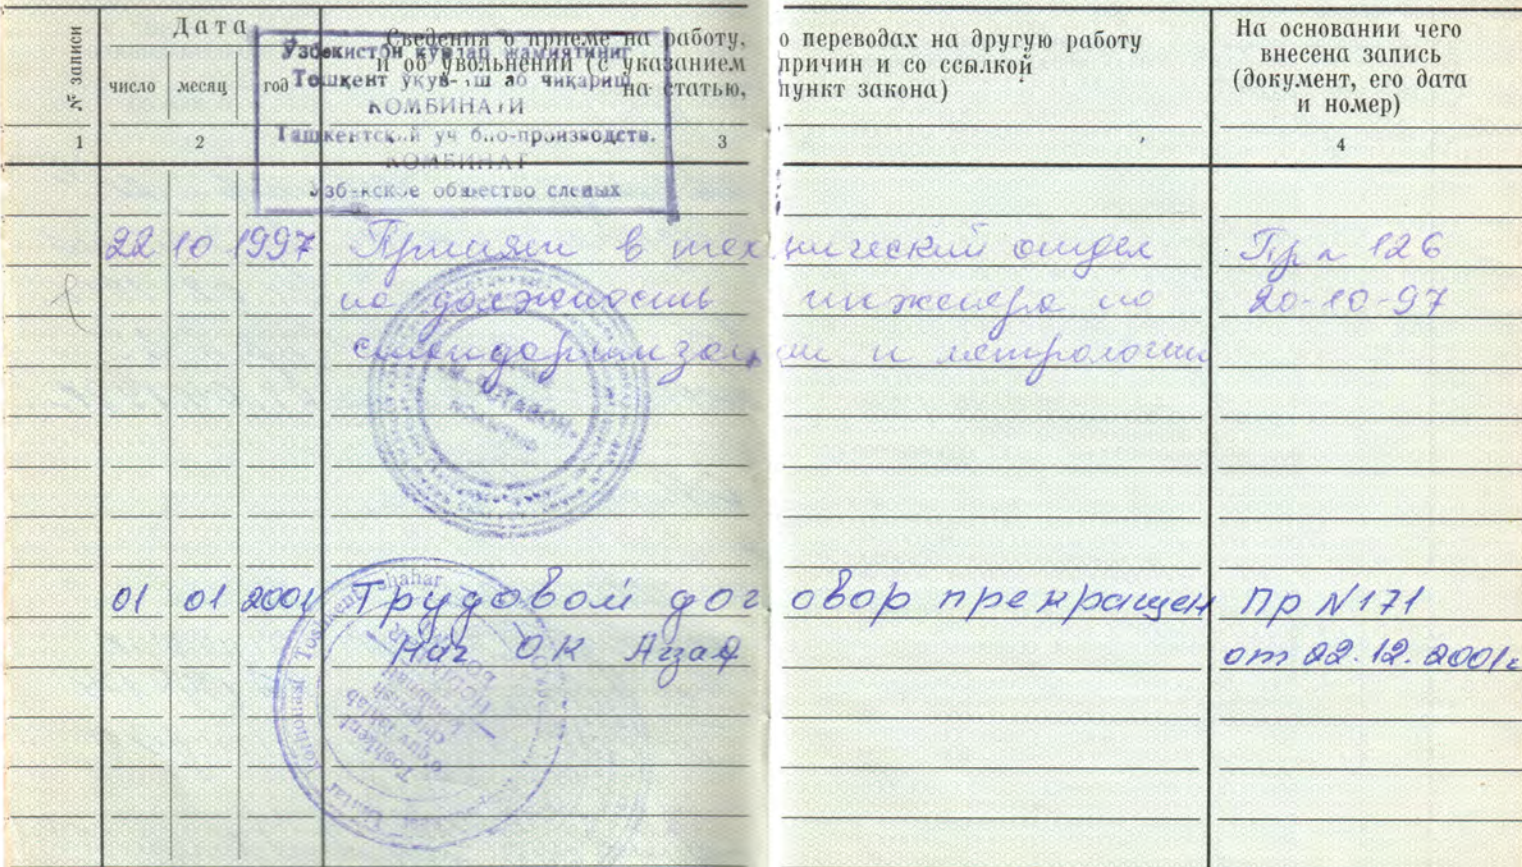 № записи
Дата
число месяц год
Сведения о приеме на работу, о переводах на другую работу
и об увольнении (с указанием причин и со ссылкой
на статью, пункт закона)
На основании чего
внесена запись
(документ, его дата
и номер)
1 2 3 4
Ўзбекистон кўзлар жамиятининг
Тошкент ўқув-иш аб чиқариш
КОМБИНАТИ
Ташкентский уч бно-производств.
КОМБИНАТ
Узбекское общество слепых
22 10 1997 Принят в технический отдел Пр № 126
на должность инженера по 20-10-97
стандартизации и метрологии
01 01 2001 Трудовой договор прекращен Пр N 171
Нач ОК от 22.12.2001г
Toshkent shahar
Toshkent